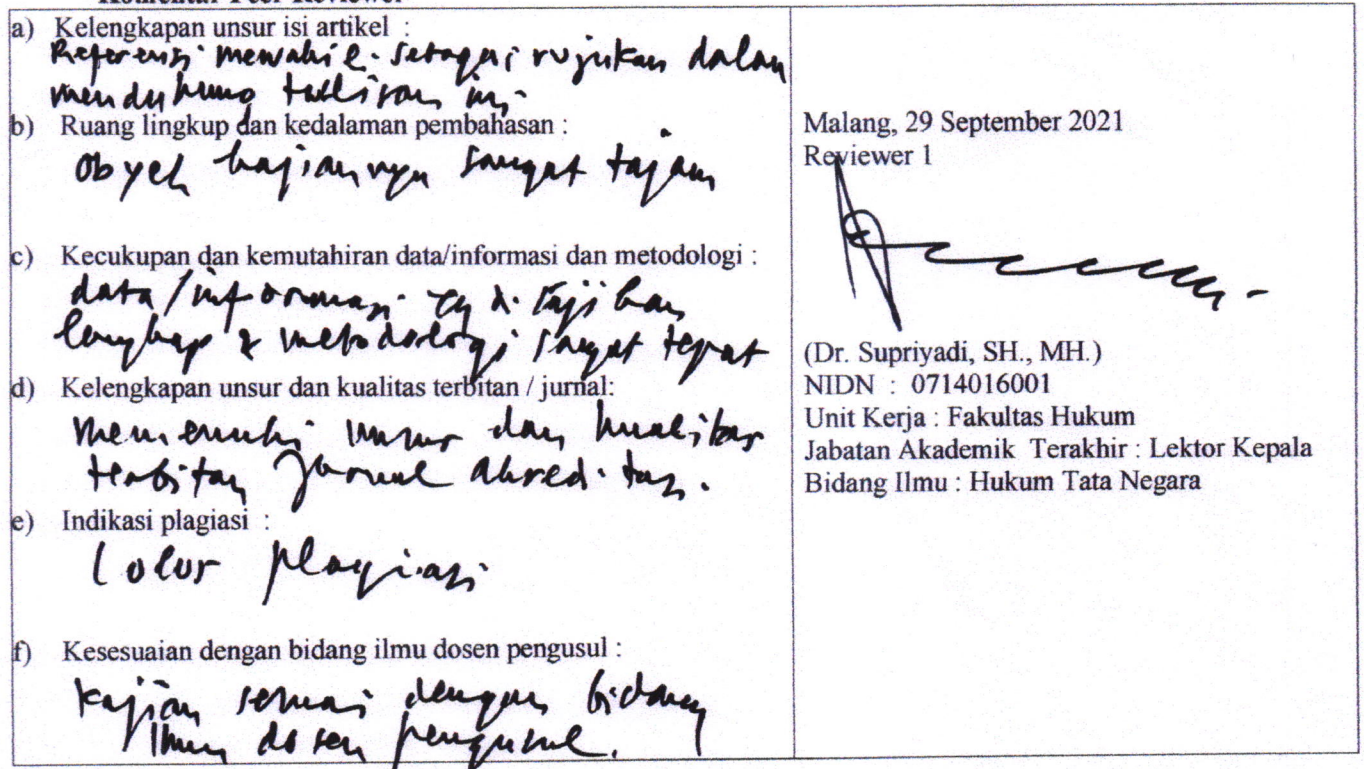 Komentar Peer Reviewer
a) Kelengkapan unsur isi artikel :
Referensi mewakili sebagai rujukan dalam
mendukung tulisan ini
b) Ruang lingkup dan kedalaman pembahasan :
Obyek kajiannya sangat tajam
c) Kecukupan dan kemutahiran data/informasi dan metodologi :
data/informasi yg disajikan
lengkap & metodologi sangat tepat
d) Kelengkapan unsur dan kualitas terbitan / jurnal:
memenuhi unsur dan kualitas
terbitan Jurnal akreditasi.
e) Indikasi plagiasi :
Lolos plagiasi
f) Kesesuaian dengan bidang ilmu dosen pengusul :
Kajian sesuai dengan bidang
Ilmu dosen pengusul.
Malang, 29 September 2021
Reviewer 1
(Dr. Supriyadi, SH., MH.)
NIDN : 0714016001
Unit Kerja : Fakultas Hukum
Jabatan Akademik Terakhir : Lektor Kepala
Bidang Ilmu : Hukum Tata Negara